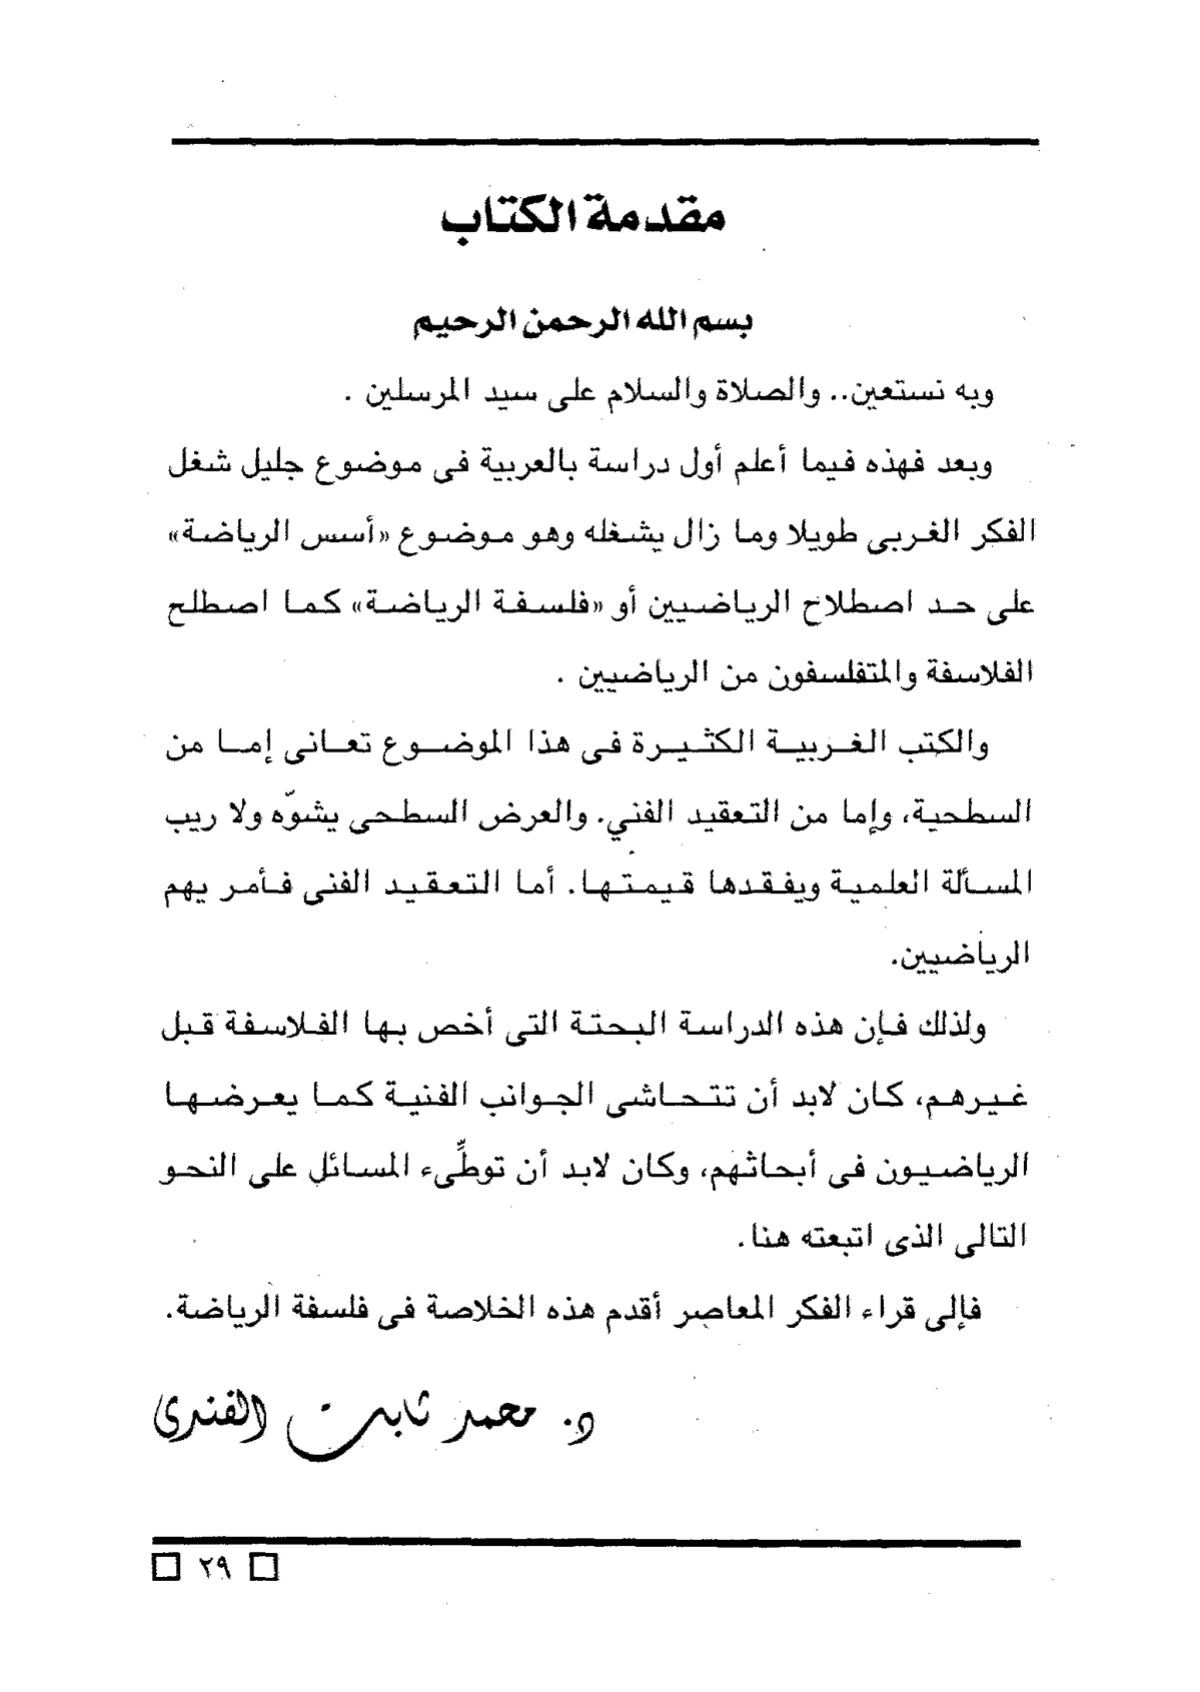 مقدمة الكتاب
بسم الله الرحمن الرحيم
وبه نستعين.. والصلاة والسلام على سيد المرسلين .
وبعد فهذه فيما أعلم أول دراسة بالعربية فى موضوع جليل شغل
الفكر الغربى طويلا وما زال يشغله وهو موضوع «أسس الرياضة»
على حد اصطلاح الرياضيين أو «فلسفة الرياضة» كما اصطلح
الفلاسفة والمتفلسفون من الرياضيين .
والكتب الغربية الكثيرة فى هذا الموضوع تعانى إما من
السطحية، وإما من التعقيد الفني. والعرض السطحى يشوّه ولا ريب
المسألة العلمية ويفقدها قيمتها. أما التعقيد الفنى فأمر يهم
الرياضيين.
ولذلك فإن هذه الدراسة البحتة التى أخص بها الفلاسفة قبل
غيرهم، كان لابد أن تتحاشى الجوانب الفنية كما يعرضها
الرياضيون فى أبحاثهم، وكان لابد أن توطِّىء المسائل على النحو
التالى الذى اتبعته هنا.
فإلى قراء الفكر المعاصر أقدم هذه الخلاصة فى فلسفة الرياضة.
د. محمد ثابت الفندى
٢٩